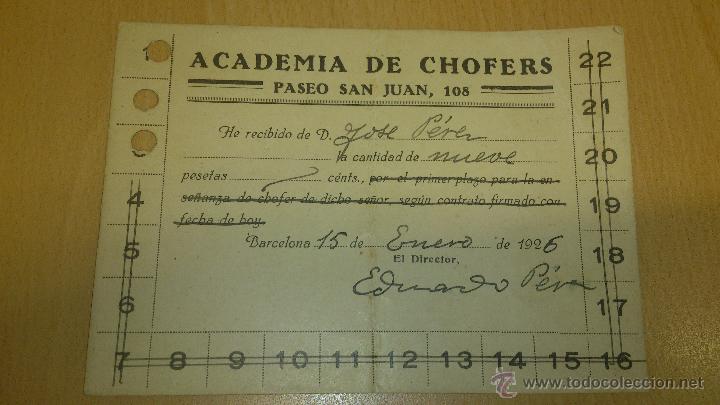 ACADEMIA DE CHOFERS
PASEO SAN JUAN, 108
He recibido de D. Jose Pérez
la cantidad de nueve
pesetas cénts., por el primer plazo para la en-
señanza de chofer de dicho señor, según contrato firmado con
fecha de hoy.
Barcelona 15 de Enero de 1926
El Director,
Eduardo Pérez
1
4
5
6
7 8 9 10 11 12 13 14 15 16
17
18
19
20
21
22
www.todocoleccion.net